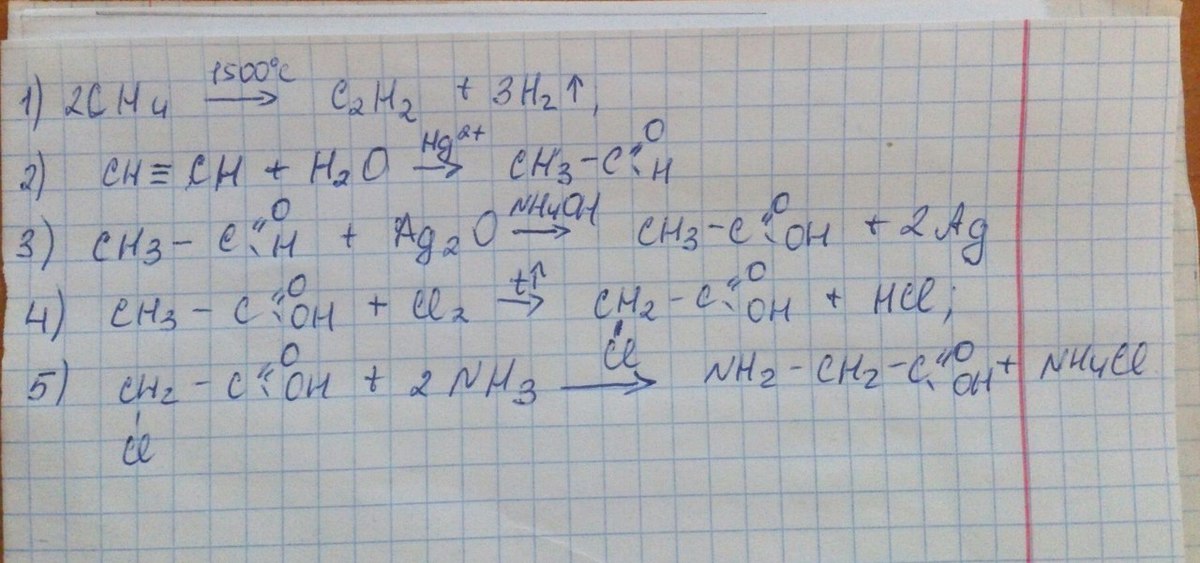 1) 2CH4 →1500°C C2H2 + 3H2↑,
2) CH≡CH + H2O →Hg2+ CH3-C(=O)H
3) CH3-C(=O)H + Ag2O →NH4OH CH3-C(=O)OH + 2Ag
4) CH3-C(=O)OH + Cl2 →t↑ CH2-C(=O)OH + HCl;
Cl
5) CH2-C(=O)OH + 2NH3 → NH2-CH2-C(=O)OH + NH4Cl
Cl